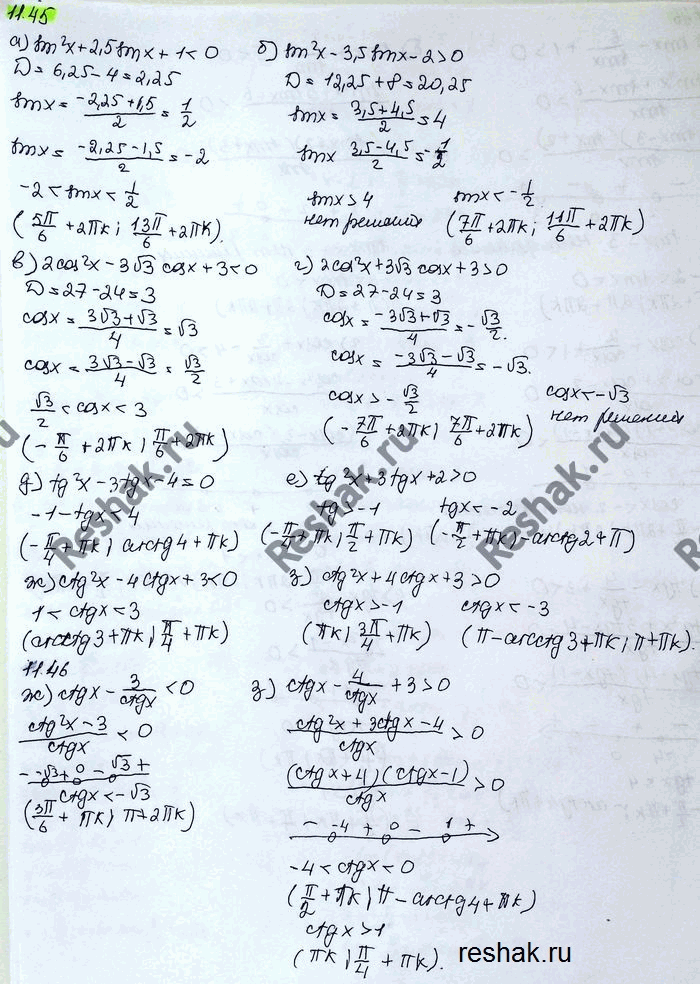 11.45
а) sin²x+2,5sinx+1<0
D=6,25-4=2,25
sinx=(-2,25+1,5)/2=1/2
sinx=(-2,25-1,5)/2=-2
-2<sinx<1/2
(5π/6+2πk; 13π/6+2πk).
б) sin²x-3,5sinx-2>0
D=12,25+8=20,25
sinx=(3,5+4,5)/2=4
sinx (3,5-4,5)/2=-1/2
sinx>4 sinx<-1/2
нет решения (7π/6+2πk; 11π/6+2πk)
в) 2cos²x-3√3 cosx+3<0
D=27-24=3
cosx=(3√3+√3)/4=√3
cosx=(3√3-√3)/4=√3/2
√3/2<cosx<3
(-π/6+2πk; π/6+2πk)
г) 2cos²x+3√3 cosx+3>0
D=27-24=3
cosx=(-3√3+√3)/4=-√3/2.
cosx=(-3√3-√3)/4=-√3.
cosx>-√3/2 cosx<-√3
(-7π/6+2πk; 7π/6+2πk) нет решения
д) tg²x-3tgx-4=0
-1<tgx<4
(-π/4+πk; arctg4+πk)
е) tg²x+3tgx+2>0
tgx>-1 tgx<-2
(-π/4+πk; π/2+πk) (-π/2+πk; -arctg2+π)
ж) ctg²x-4ctgx+3<0
1<ctgx<3
(arcctg3+πk; π/4+πk)
з) ctg²x+4ctgx+3>0
ctgx>-1 ctgx<-3
(πk; 3π/4+πk) (π-arcctg3+πk; π+πk).
11.46
ж) ctgx-3/ctgx<0
(ctg²x-3)/ctgx<0
- -√3 + 0 - √3 +
ctgx<-√3
(3π/6+πk; π+2πk)
з) ctgx-4/ctgx+3>0
(ctg²x+3ctgx-4)/ctgx>0
(ctgx+4)(ctgx-1)/ctgx>0
- -4 + 0 - 1 +
-4<ctgx<0
(π/2+πk; π-arcctg4+πk)
ctgx>1
(πk; π/4+πk).
Reshak.ru
Reshak.ru
Reshak.ru
reshak.ru